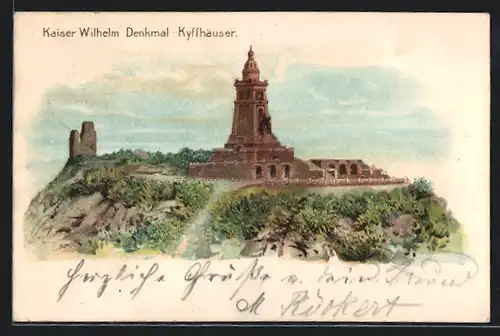 Kaiser Wilhelm Denkmal - Kyffhäuser.
Herzliche Grüße v. dein Freund
M Rückert